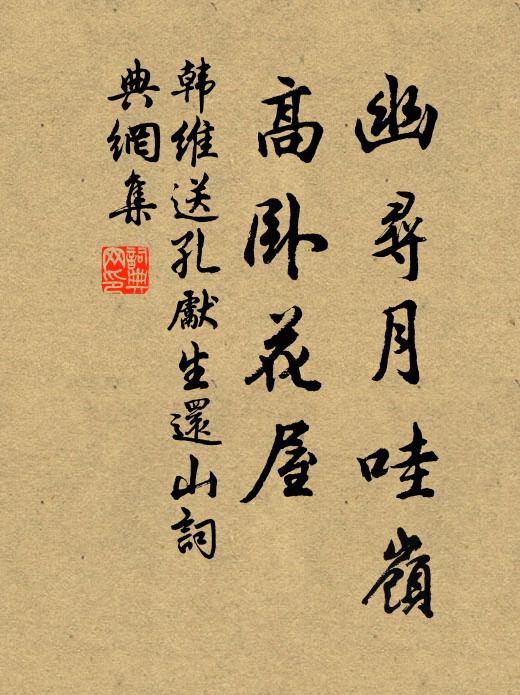 幽尋月哇嶺
高卧花屋
韩维送孔處生還山詞
典網集
詞典网印